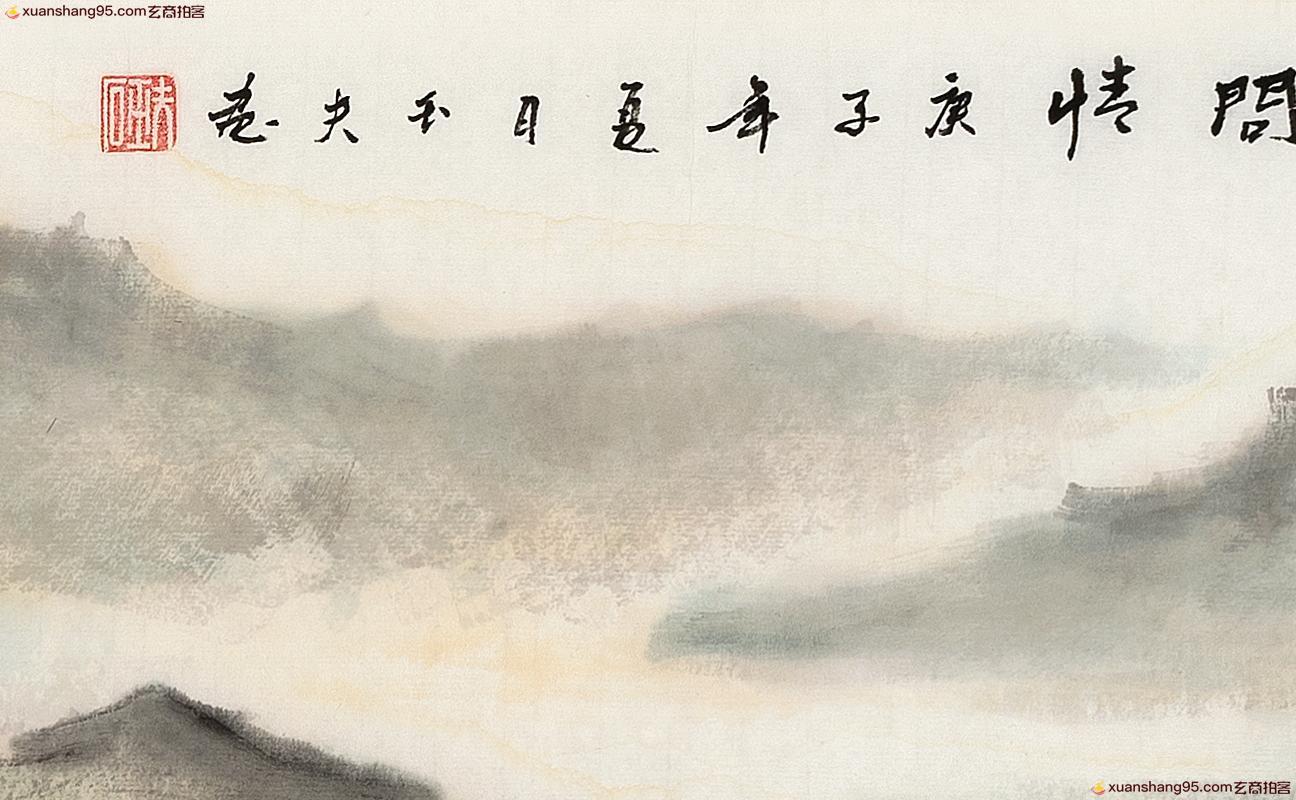 xuanshang95.com玄商拍客
問情 庚子年夏月玉夫
xuanshang95.com玄商拍客